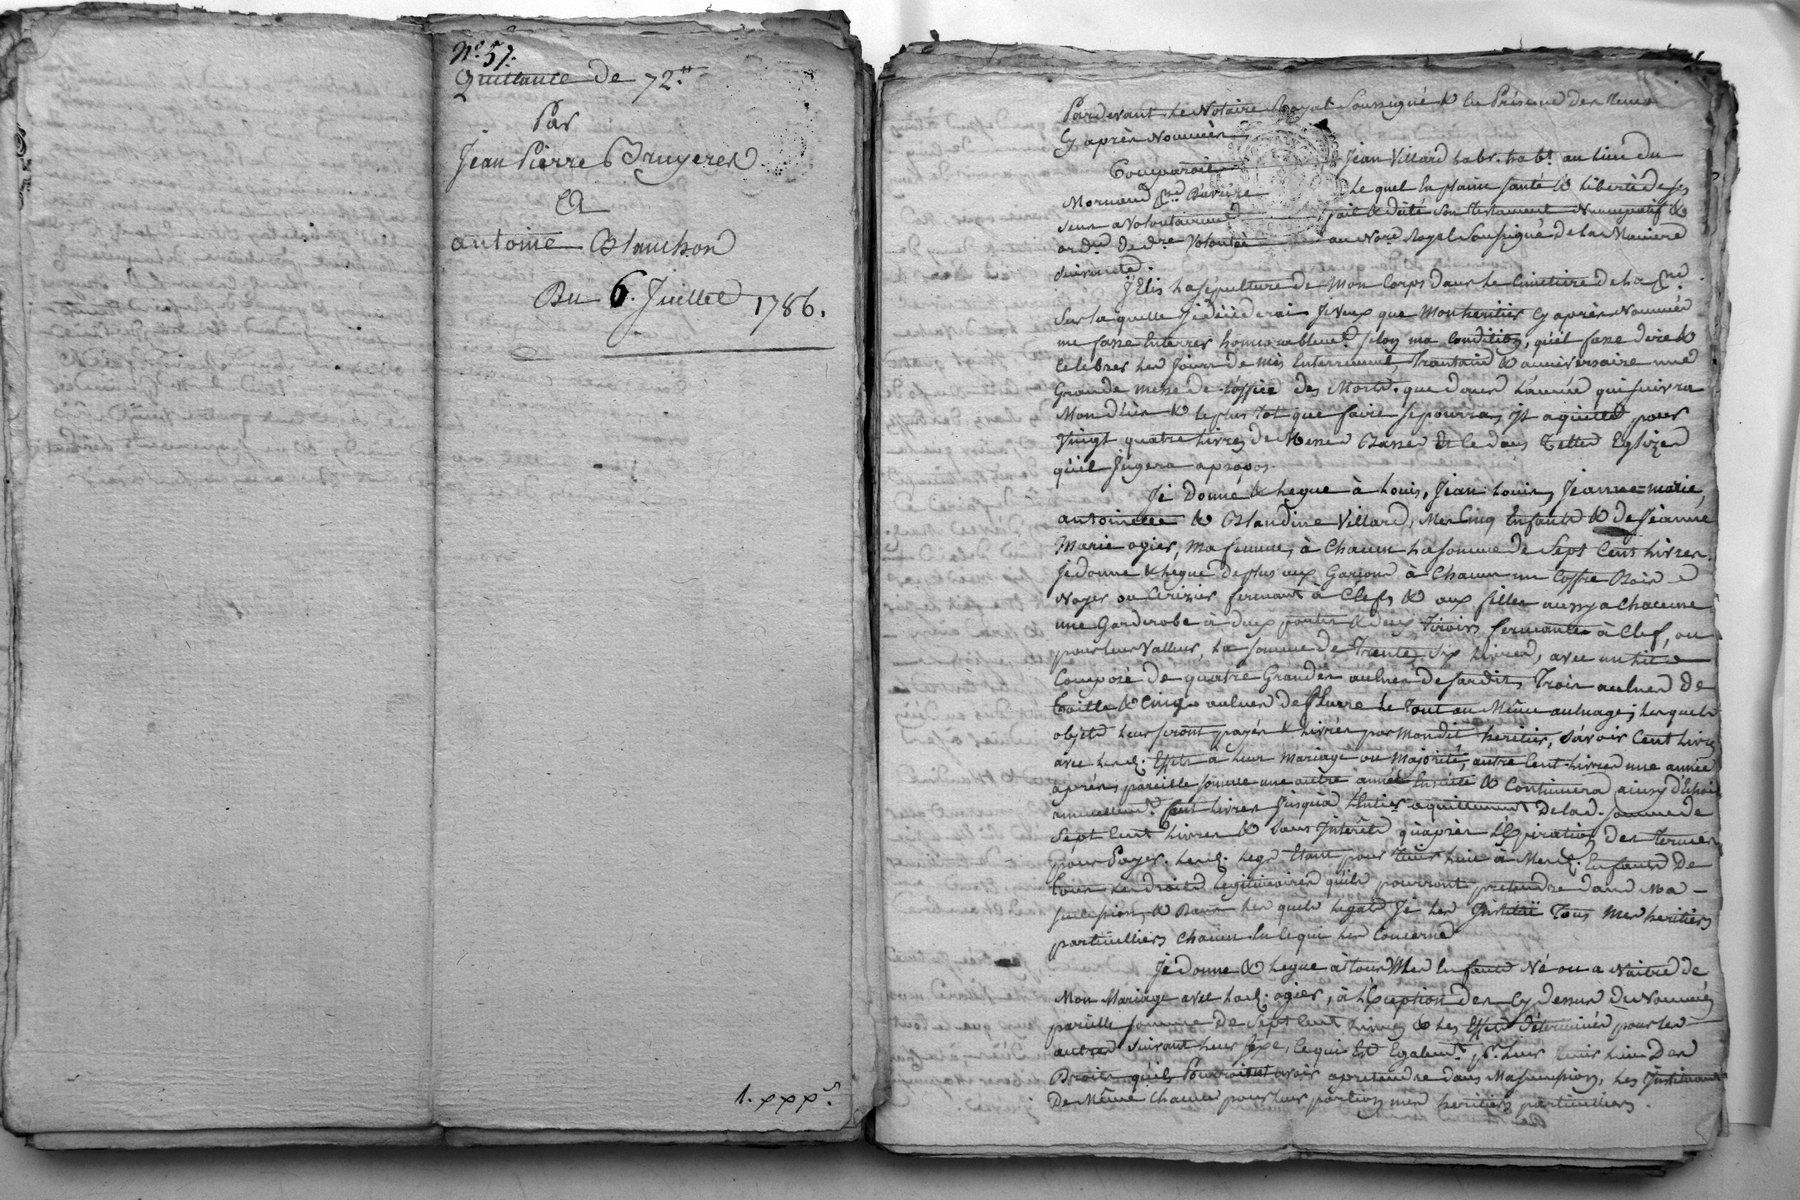 N.° 57.
Quittance de 72.tt
Par
Jean Pierre Bruyeres
A
antoine Blanchon
Du 6. Juillet 1786.
1. xxx.s
Pardevant Le Notaire Royal Soussigné & En Présence des temoins
Cy après Nommés
Comparait Jean Villard labr. habt. au lieu du
Mornand Le quel En plaine santé & liberté de ses
sens a volontairemt fait & dicté son testament Nuncupatif &
ordce de dre Volonté au Nore Royal Soussigné de la Maniere
suivante.
J'Elis la sépulture de Mon Corps dans le Cimetiere de la
Sur la quelle Je déciderai Je Veux que Mon héritier Cy après Nommé
me fasse Enterrer honnorablemt. selon ma condition, qu'il fasse dire &
Celebrer les Jours de mes Enterrement, Trantaine & anniversaire une
Grande messe de l'office des Morts. que dans L'année qui suivra
Mon décès & le plus tot que faire se pourra, Il aquitte pour
Vingt quatre livres de Messes Basses Et ce dans Telles Eglizes
qu'il Jugera apropos.
Je Donne & Legue à Louis, Jean Louis, Jeanne-marie,
antoinette & Blandine Villard, Mes Cinq Enfants & de Jeanne
Marie ogier, Ma femme, à Chacun La somme de Sept Cents livres.
Je donne & Legue de plus aux Garçons à Chacun un Coffre Bois
Noyer ou Cerizier fermant à Clef, & aux filles aussy a Chacune
une Garderobe à deux portes & deux Tiroirs fermantes à Clef, ou
pour leur Valleur, La somme de Trente Six livres, avec un lit
Composé de quatre Grandes aulnes de sardis, Trois aulnes De
Toille & Cinq aulnes de Bure Le Tout au Même aulnage; les quels
objets leur seront payés & livrés par Mondit heritier, savoir Cent livres
avec les d. Effets a leur Mariage ou Majorité, autre Cent livres une année
après, pareille somme une autre année Ensuite & Continuera ainsy d'Echoir
annuellemt. Cent livres Jusqu'a L'Entier aquittement De lad. somme de
Sept Cent livres & sans Intérêt qu'après L'Expiration des termes
pour Payer. les d. Legs Etant pour tenir lieu à Mes d. Enfants De
Tous les droits Legitimaires qu'ils pourront pretendre dans Ma
succession, & Dans les quels Legats Je les Institue Tous Mes heritiers
particulliers Chacun En ce qui les Concerne
Je donne & Legue à tous Mes Enfants Né ou a Naitre de
Mon Mariage avec La d. ogier, à l'Exception des Cy dessus Dénommés
pareille somme de Sept Cent livres & les Effets déterminés pour les
autres suivant leur sexe, Ce qui Est Egalemt. pr. leur tenir lieu Des
Droits qu'ils Pourroient avoir a pretendre dans Ma succession, Les Instituant
De Même Chacun pour leur portion mes heritiers particuliers.